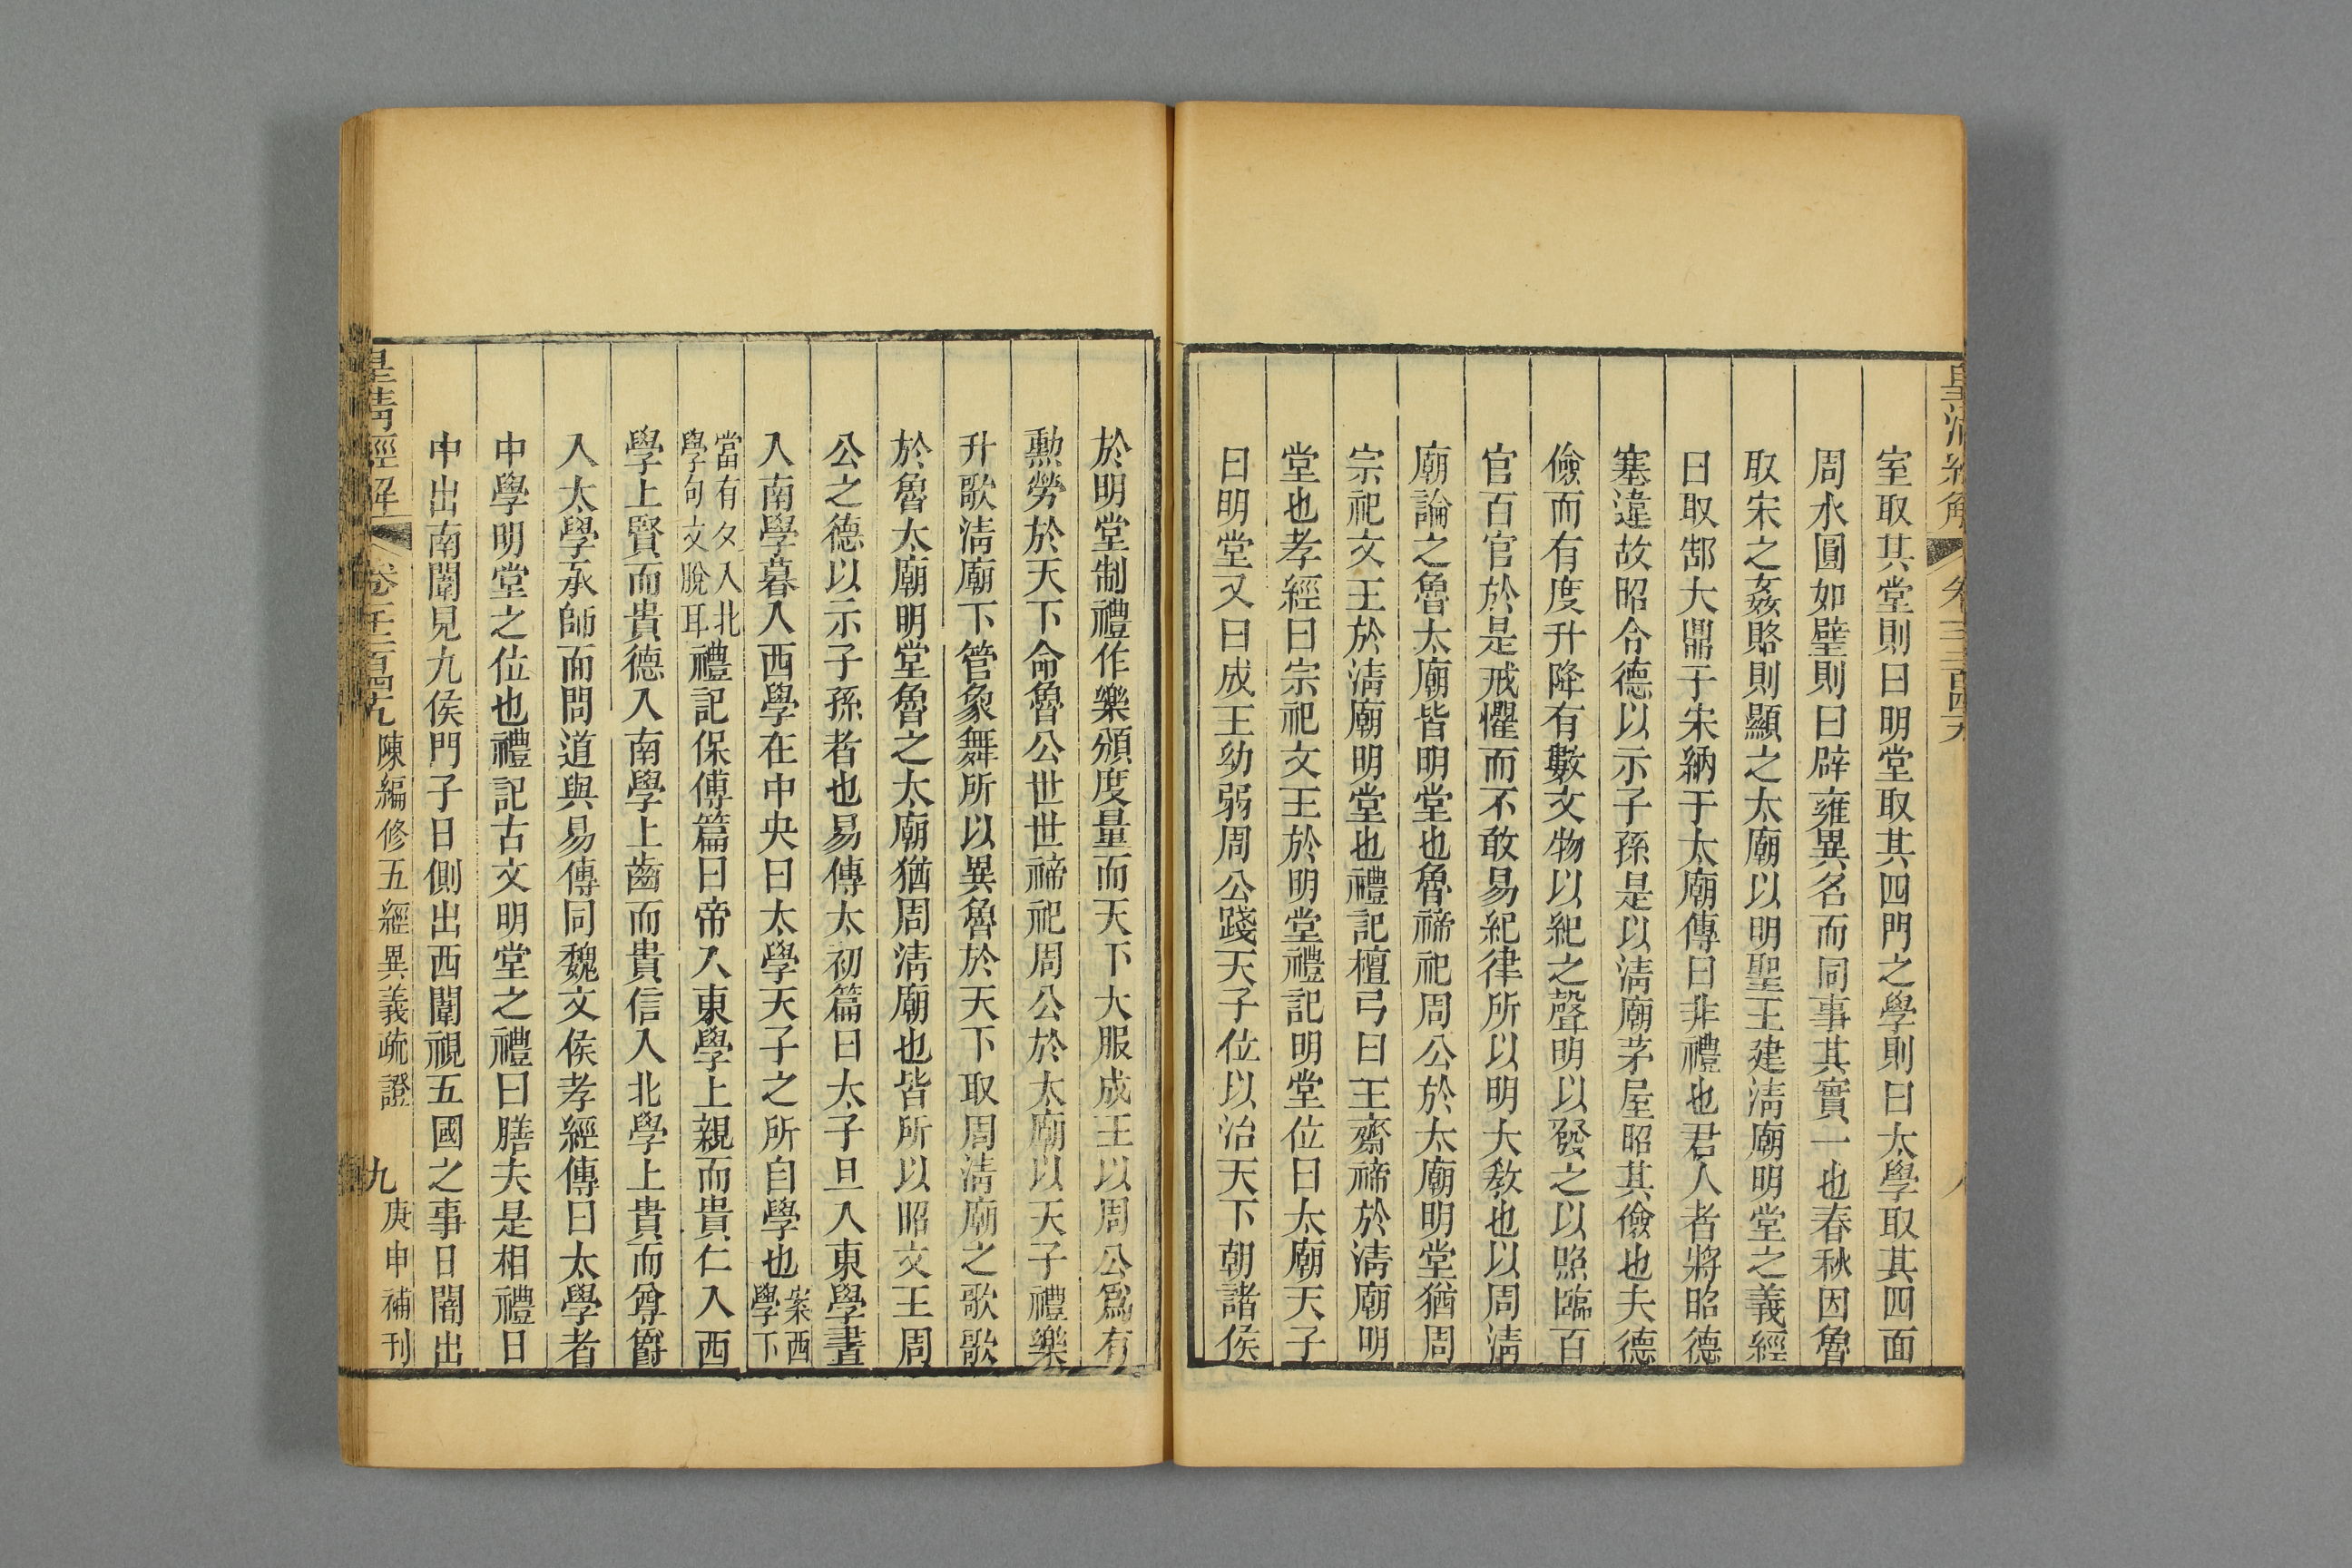 皇清經解
室取其堂則曰明堂取其四門之學則曰太學取其四面
周水圓如璧則曰辟雍異名而同事其實一也春秋因魯
取宋之姦賂則顯之太廟以明聖王建淸廟明堂之義經
曰取郜大鼎于宋納于太廟傳曰非禮也君人者將昭德
塞違故昭令德以示子孫是以淸廟茅屋昭其儉也夫德
儉而有度升降有數文物以紀之聲明以發之以照臨百
官百官於是戒懼而不敢易紀律所以明大敎也以周淸
廟論之魯太廟皆明堂也魯禘祀周公於太廟明堂猶周
宗祀文王於淸廟明堂也禮記檀弓曰王齋禘於淸廟明
堂也孝經曰宗祀文王於明堂禮記明堂位曰太廟天子
曰明堂又曰成王幼弱周公踐天子位以治天下朝諸侯
於明堂制禮作樂頒度量而天下大服成王以周公爲有
勲勞於天下命魯公世世禘祀周公於太廟以天子禮樂
升歌淸廟下管象舞所以異魯於天下取周淸廟之歌歌
於魯太廟明堂魯之太廟猶周淸廟也皆所以昭文王周
公之德以示子孫者也易傳太初篇曰太子旦入東學晝
入南學暮入西學在中央曰太學天子之所自學也案西學下
當有夕入北學句文脫耳禮記保傅篇曰帝入東學上親而貴仁入西
學上賢而貴德入南學上齒而貴信入北學上貴而尊爵
入太學承師而問道與易傳同魏文侯孝經傳曰太學者
中學明堂之位也禮記古文明堂之禮曰膳夫是相禮日
中出南闈見九侯門子日側出西闈視五國之事日闇出
皇清經解 卷 陳編修五經異義疏證 九 庚申補刊